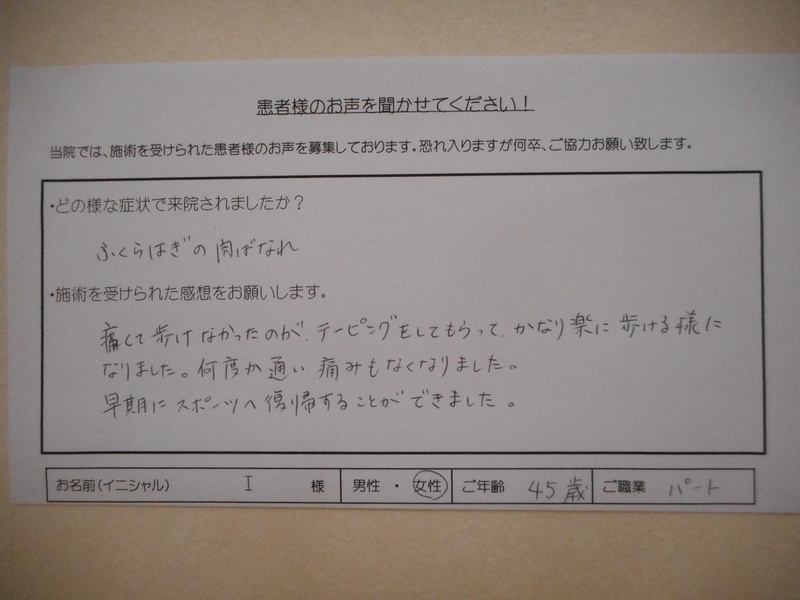 患者様のお声を聞かせてください！
当院では、施術を受けられた患者様のお声を募集しております。恐れ入りますが何卒、ご協力お願い致します。
・どの様な症状で来院されましたか？
ふくらはぎの肉ばなれ
・施術を受けられた感想をお願いします。
痛くて歩けなかったのが、テーピングをしてもらって、かなり楽に歩ける様に
なりました。何度か通い、痛みもなくなりました。
早期にスポーツへ復帰することができました。
お名前(イニシャル) I 様 男性 ・ 女性 ご年齢 45歳 ご職業 パート